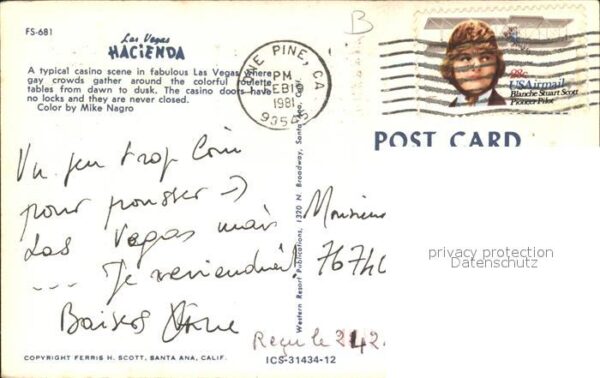 FS-681
Las Vegas
HACIENDA
A typical casino scene in fabulous Las Vegas where
gay crowds gather around the colorful roulette
tables from dawn to dusk. The casino doors have
no locks and they are never closed.
Color by Mike Nagro
B
LONE PINE, CA
PM
FEB
1981
93545
28c
USAirmail
Blanche Stuart Scott
Pioneer Pilot
POST CARD
Un peu trop loin
pour pousser →
Las Vegas mais
... Je reviendrai!
Baisers
Monsieur
7674
privacy protection
Datenschutz
Reçu le 2 42.
Western Resort Publications, 1320 N. Broadway, Santa Ana, Calif.
COPYRIGHT FERRIS H. SCOTT, SANTA ANA, CALIF.
ICS-31434-12